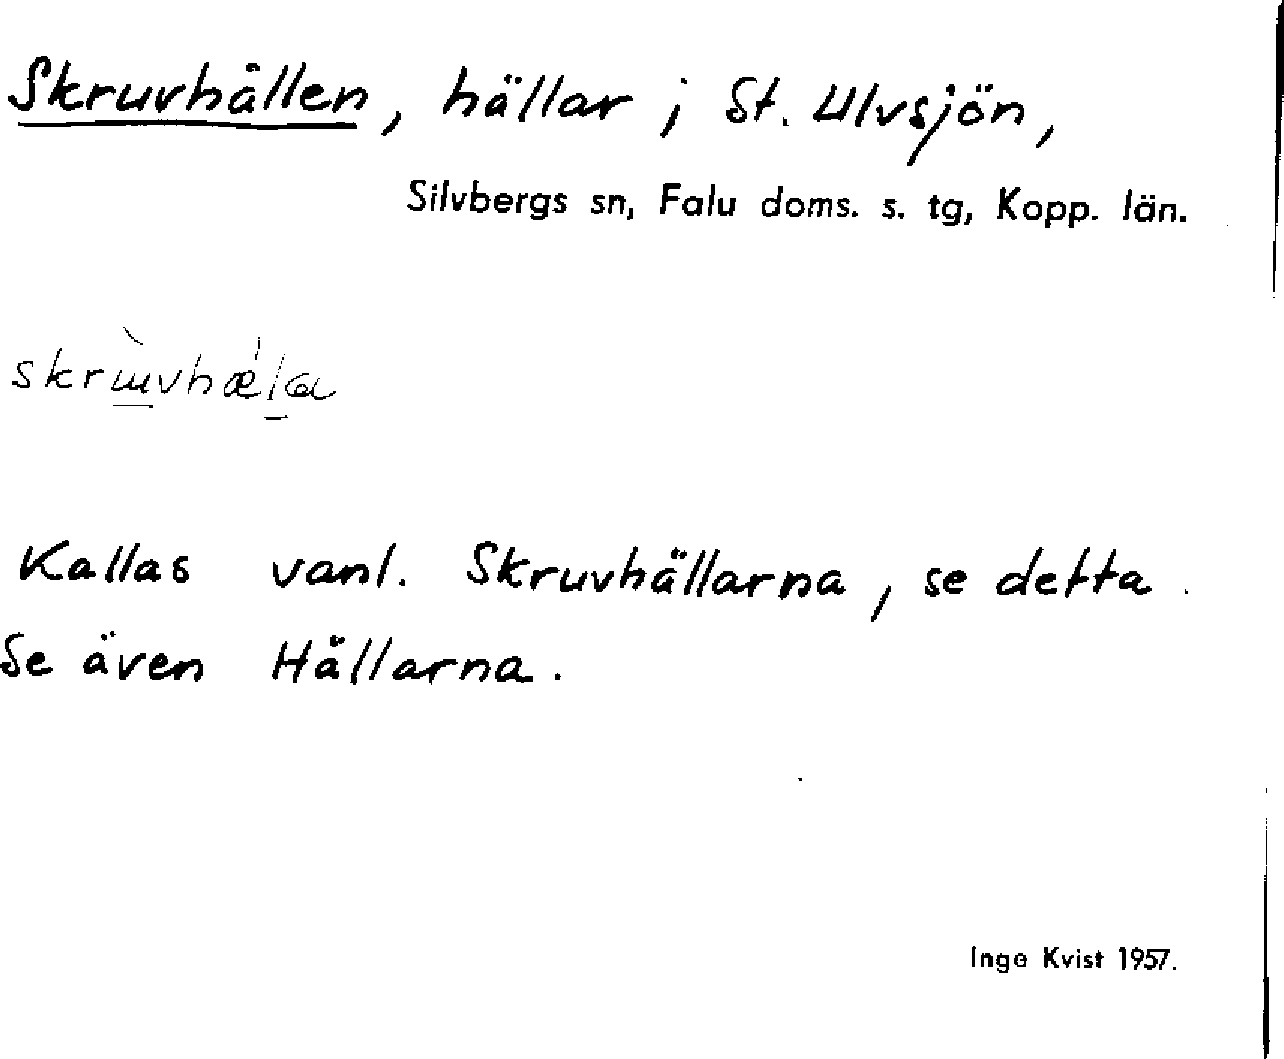 Skruvhällen, hällar i St. Ulvsjön,
Silvbergs sn, Falu doms. s. tg, Kopp. län.
Kallas vanl. Skruvhällarna, se detta.
Se även Hällarna.
Inga Kvist 1957.